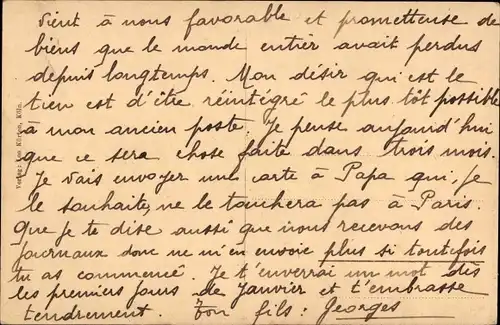 vient à nous favorable et prometteuse de
biens que le monde entier avait perdus
depuis longtemps. Mon désir qui est le
tien est d'être réintégré le plus tôt possible
à mon ancien poste. Je pense aujourd'hui
que ce sera chose faite dans trois mois.
Je vais envoyer une carte à Papa qui, je
le souhaite, ne le touchera pas à Paris.
Que je te dise aussi que nous recevons des
journaux donc ne m'en envoie plus si toutefois
tu as commencé. Je t'enverrai un mot dès
les premiers jours de Janvier et t'embrasse
tendrement. Ton fils: Georges
Verlag: Leo Köln.